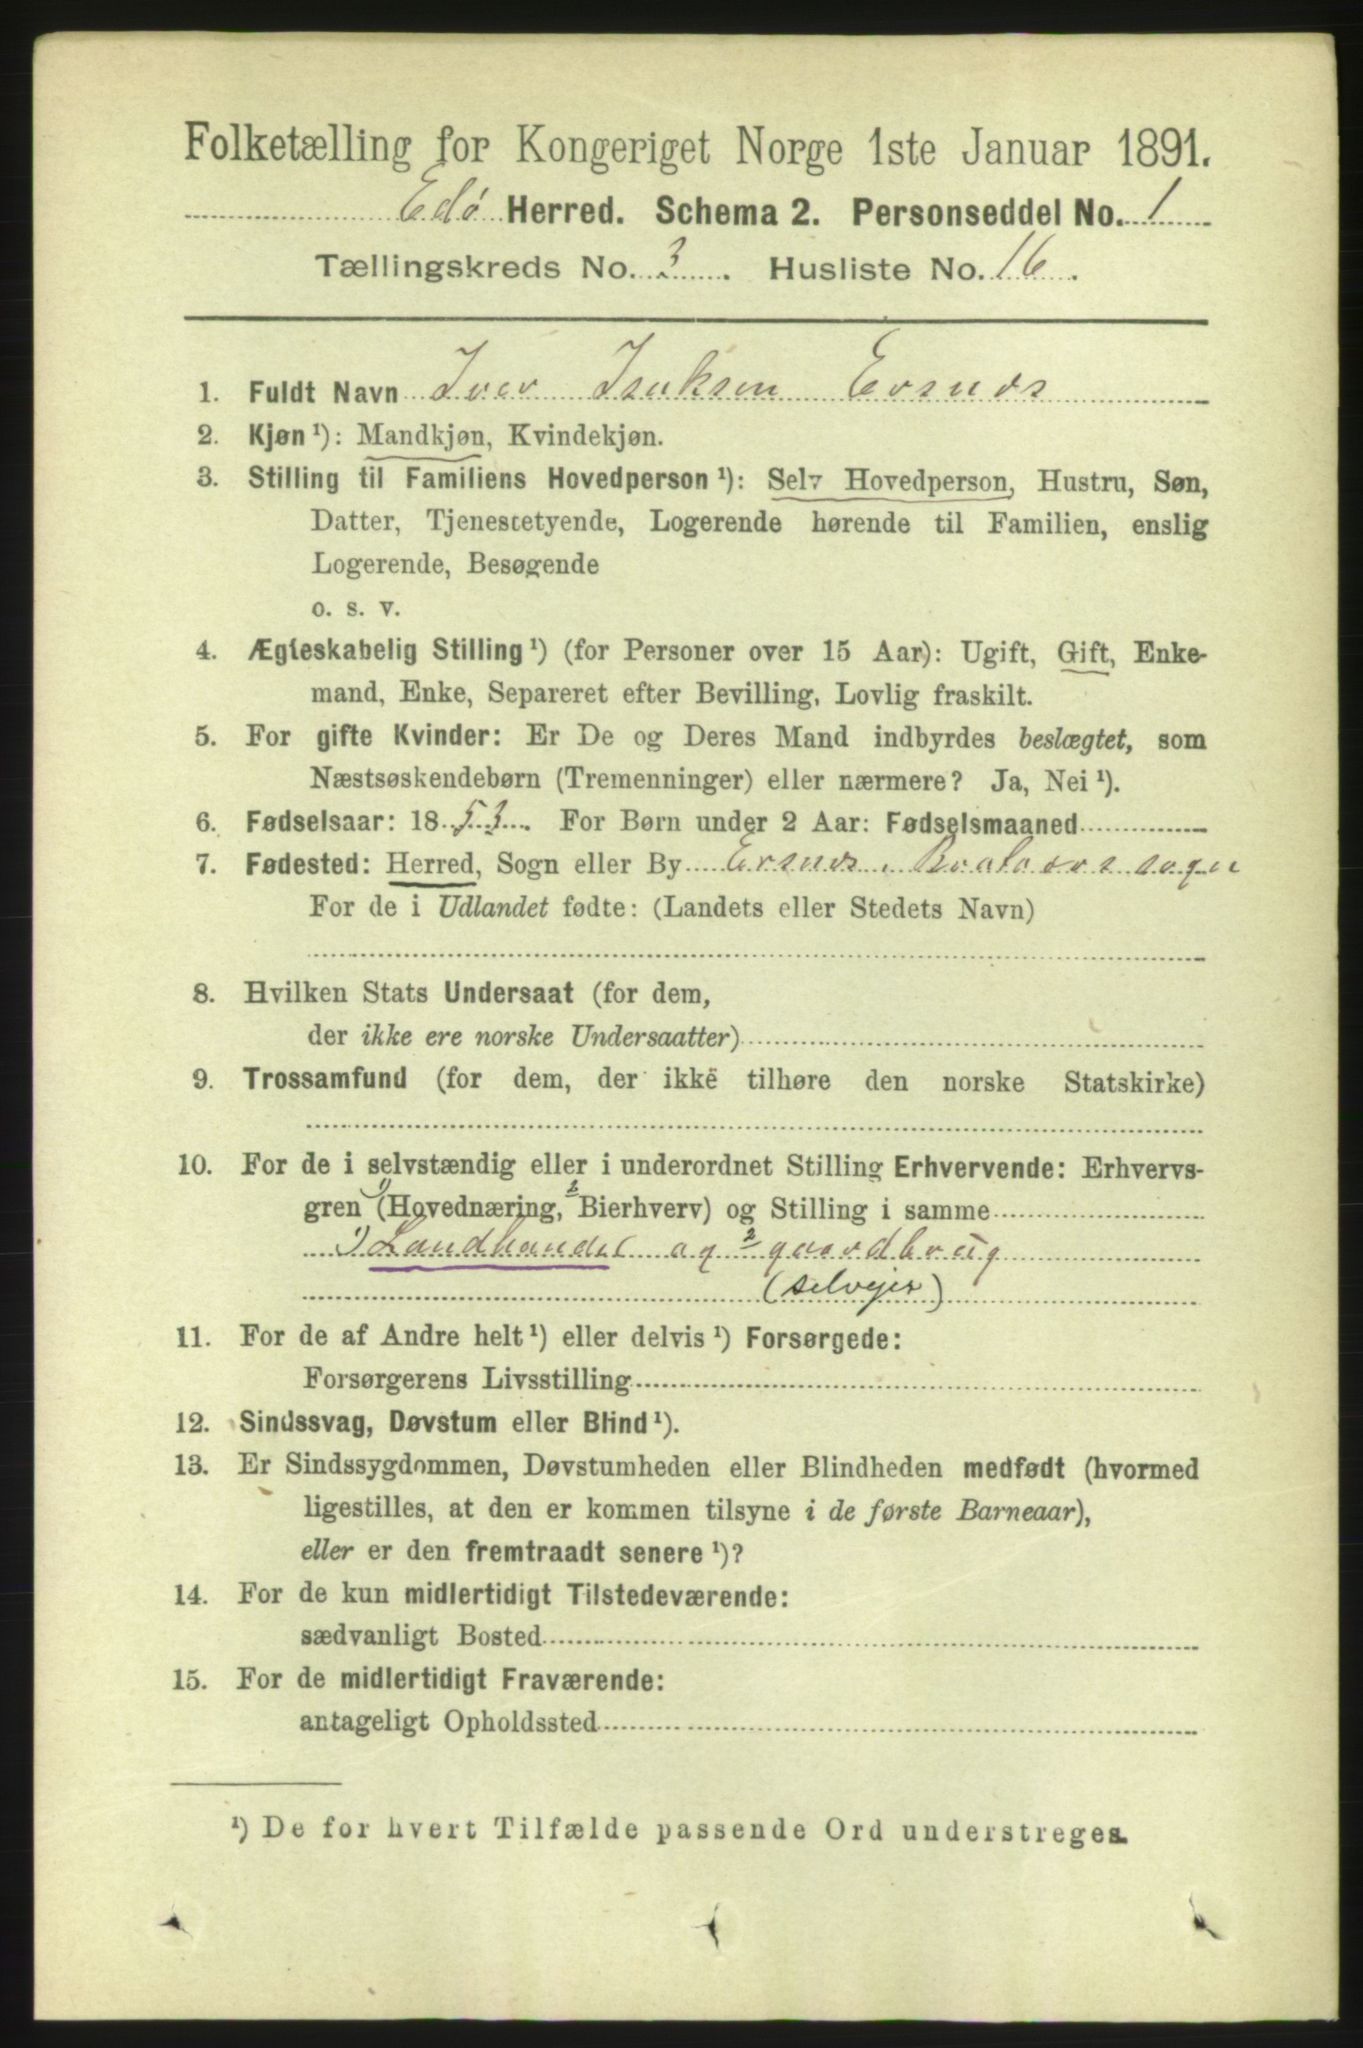 Folketælling for Kongeriget Norge 1ste Januar 1891.
Edø Herred. Schema 2. Personseddel No. 1
Tællingskreds No. 3. Husliste No. 16.
1. Fuldt Navn Iver Isaksen Ersnes
2. Kjøn ¹): Mandkjøn, Kvindekjøn.
3. Stilling til Familiens Hovedperson ¹): Selv Hovedperson, Hustru, Søn,
Datter, Tjenestetyende, Logerende hørende til Familien, enslig
Logerende, Besøgende
o. s. v.
4. Ægteskabelig Stilling ¹) (for Personer over 15 Aar): Ugift, Gift, Enke-
mand, Enke, Separeret efter Bevilling, Lovlig fraskilt.
5. For gifte Kvinder: Er De og Deres Mand indbyrdes beslægtet, som
Næstsøskendebørn (Tremenninger) eller nærmere? Ja, Nei ¹).
6. Fødselsaar: 1853. For Børn under 2 Aar: Fødselsmaaned
7. Fødested: Herred, Sogn eller By Ersnes,
For de i Udlandet fødte: (Landets eller Stedets Navn)
8. Hvilken Stats Undersaat (for dem,
der ikke ere norske Undersaatter)
9. Trossamfund (for dem, der ikke tilhøre den norske Statskirke)
10. For de i selvstændig eller i underordnet Stilling Erhvervende: Erhvervs-
gren 1) (Hovednæring, 2 Bierhverv) og Stilling i samme
1) Landhandel og 2 gaardbrug
(selvejer)
11. For de af Andre helt ¹) eller delvis ¹) Forsørgede:
Forsørgerens Livsstilling
12. Sindssvag, Døvstum eller Blind ¹).
13. Er Sindssygdommen, Døvstumheden eller Blindheden medfødt (hvormed
ligestilles, at den er kommen tilsyne i de første Barneaar),
eller er den fremtraadt senere ¹)?
14. For de kun midlertidigt Tilstedeværende:
sædvanligt Bosted
15. For de midlertidigt Fraværende:
antageligt Opholdssted
¹) De for hvert Tilfælde passende Ord understreges.